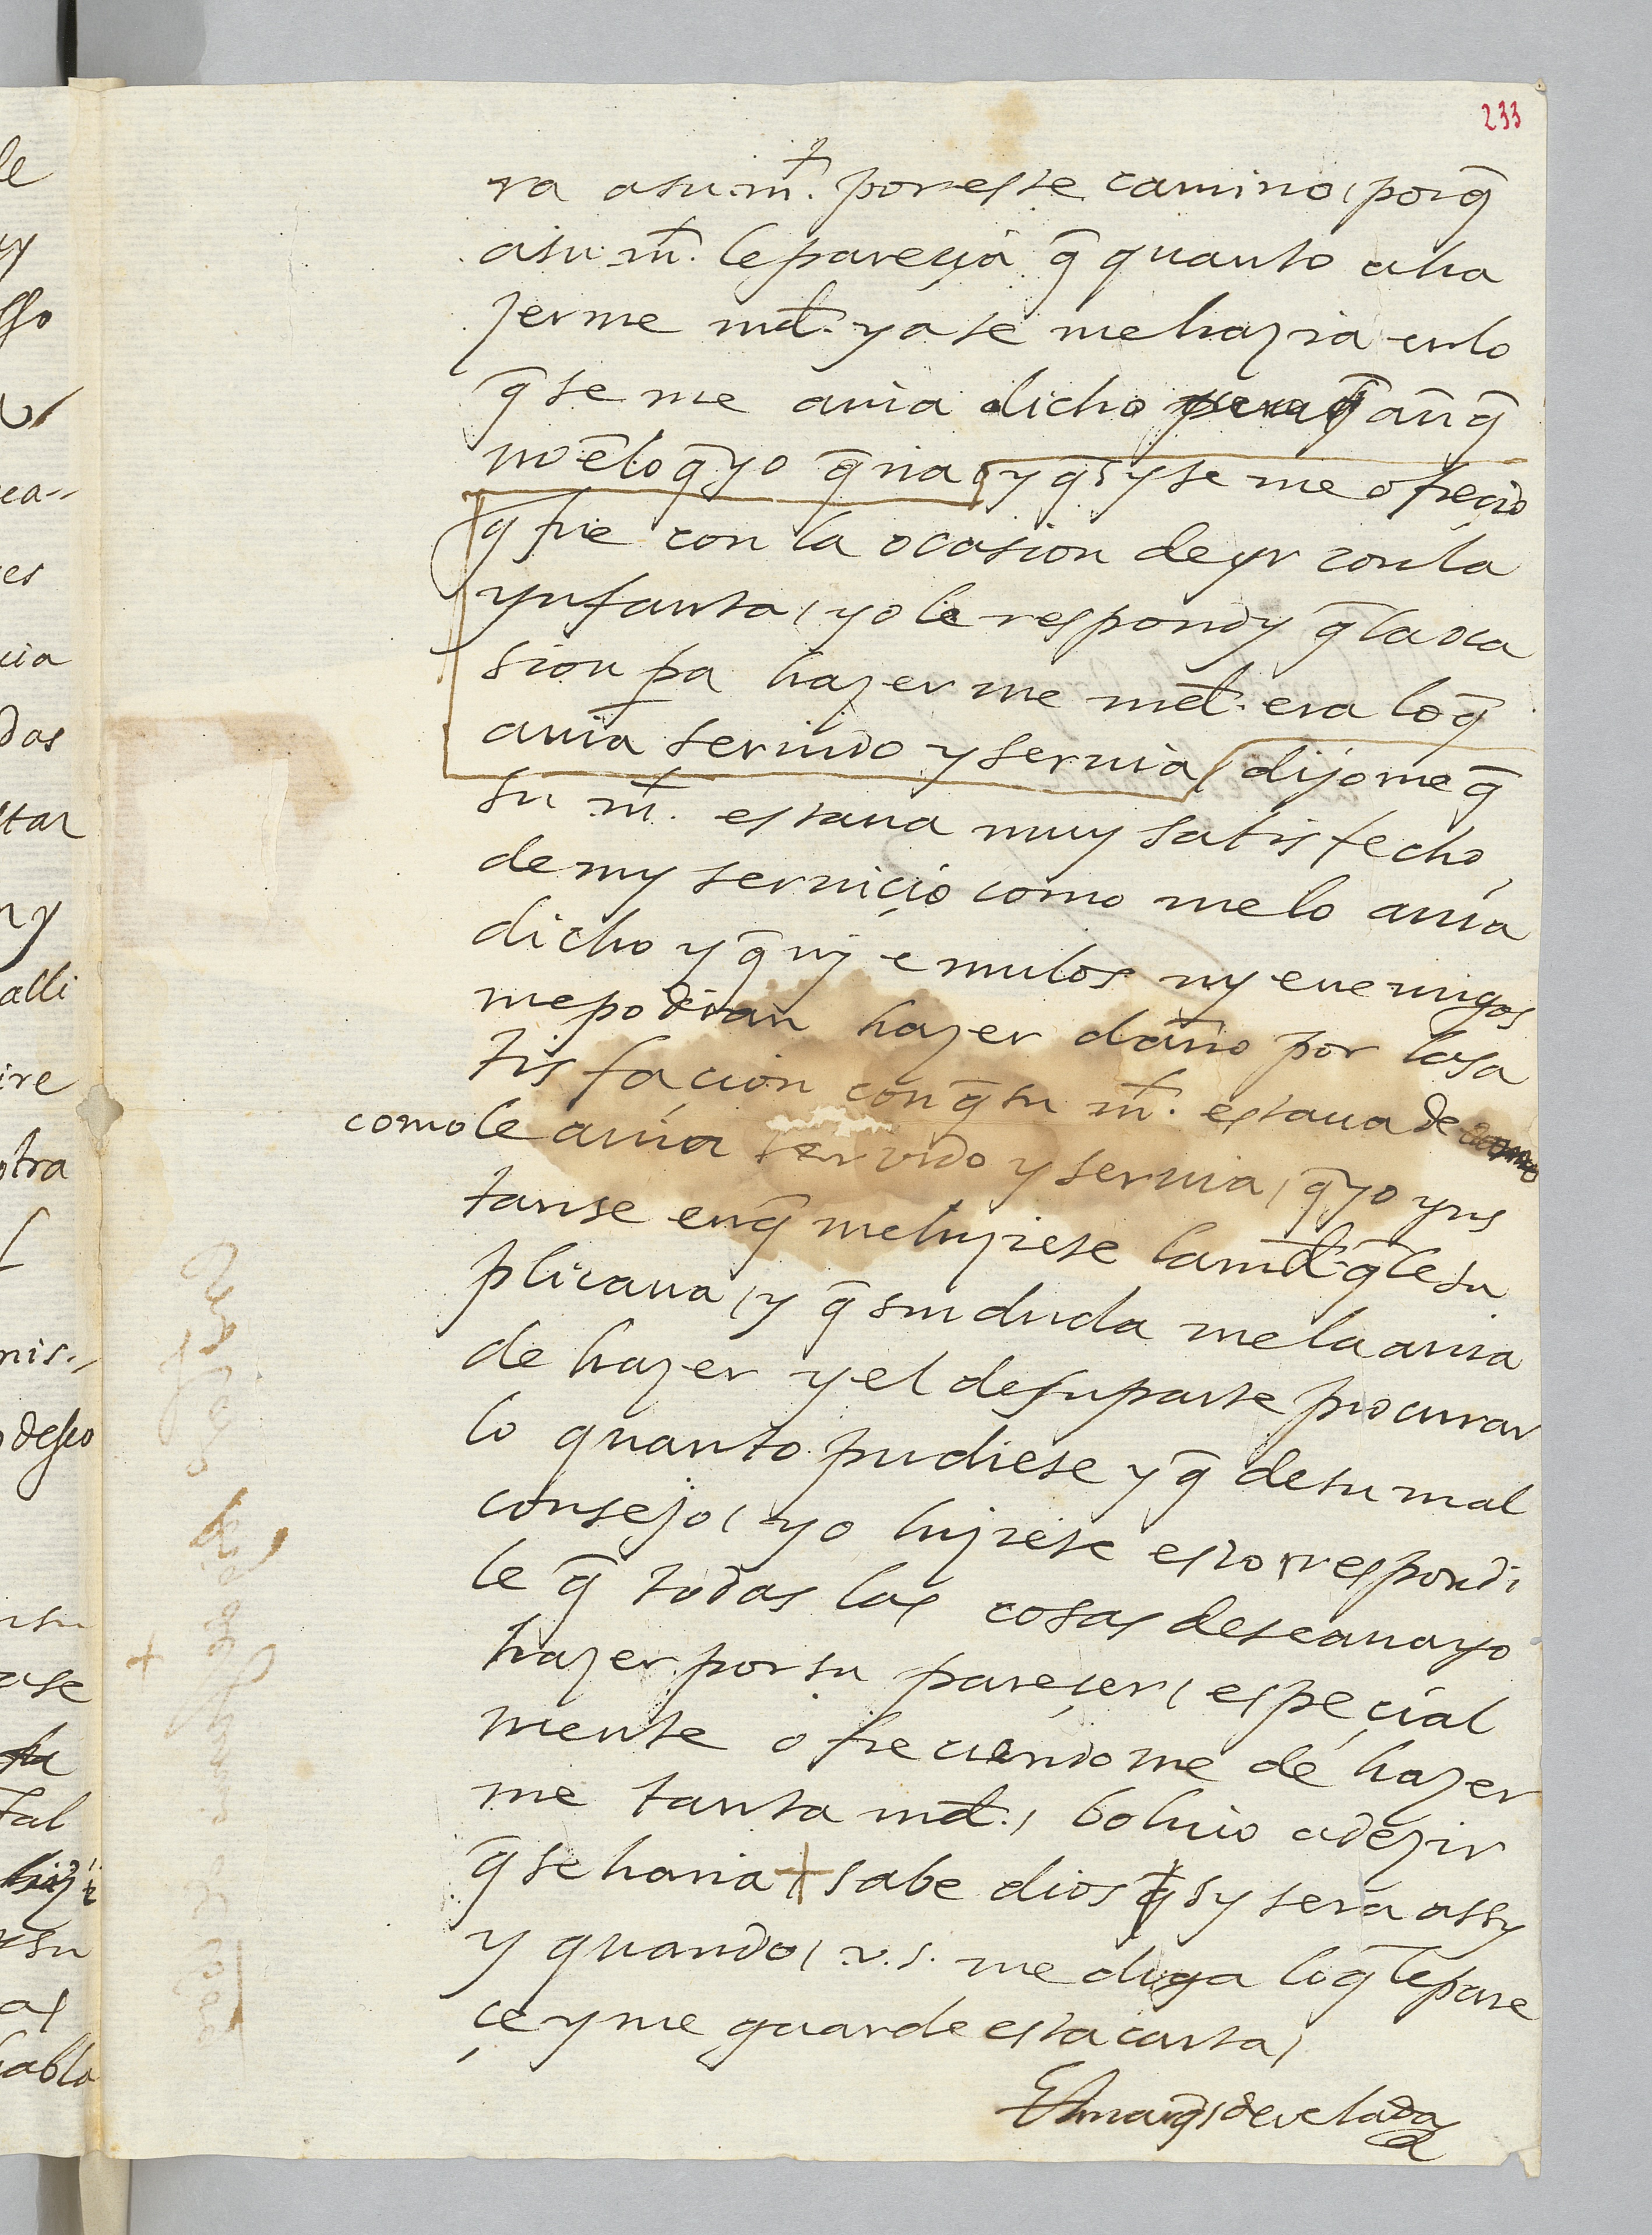 233
ra a su m.t por este camino, porq̄
a su m.t le pareçia q̄ quanto a ha
zerme md. ya se me hazia en lo
q̄ se me auia dicho aūq̄
no ē lo q̄ yo q̄ria, y q̄ sy se me ofreçio
q̄ fue con la ocasion de yr con la
ynfanta, yo le respondy q̄ la oca
sion pa hazer me md. era lo q̄
auia seruido y seruia, dijome q̄
su m.t estaua muy satisfecho
de my seruiçio como me lo auia
dicho y q̄ ny emulos ny enemigos
me podian hazer daño por la sa
tisfaçion con q̄ su m.t estaua de como
como le auia seruido y seruia, q̄ yo yns
tanse en q̄ me hiziese la md. q̄ le su
plicaua, y q̄ sin duda me la auia
de hazer y el de su parte procurar
lo quanto pudiese y q̄ de su mal
consejo, yo hiziese esto, respondi
le q̄ todas las cosas deseaua yo
hazer por su pareçer, espeçial
mente ofreciendome de hazer
me tanta md., boluio a dezir
q̄ se haria + sabe dios q̄ sy sera assy
y quando, v.s. me diga lo q̄ le pare
çe y me guarde esta carta,
El marq̄s de velada
+